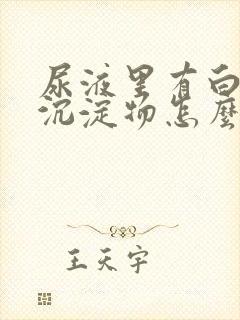 尿液里有白
沉淀物怎麼
王天宇